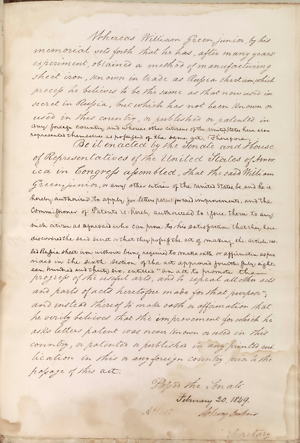 Whereas William Green, junior, by his
memorial sets forth that he has, after many years
experiment, obtained a method of manufacturing
sheet iron, known in trade as Russia sheet iron, which
process he believes to be the same as that now used in
secret in Russia, but which has not been known or
used in this country, or published or patented in
any foreign country and whereas other citizens of the United States have also
represented themselves as possessed of the same art, Therefore,
Be it enacted by the Senate and House
of Representatives of the United States of Amer
ica in Congress assembled, That the said William
Green, junior, or any other citizen of the United States be and he is
hereby authorized to apply for letters patent for said improvements, and the
Commissioner of Patents is hereby authorized to issue them to any
such citizen as aforesaid who can prove to his satisfaction that they have
discovered the said and that they possess the art of making the article
Russia sheet iron without being required to make oath or affirmation
in the sixth section of the act approved fourth July eigh
teen hundred and thirty six, entitled "An act to promote the
progress of the useful arts, and to repeal all other acts
and parts of acts heretofore made for that purpose";
and instead thereof to make oath or affirmation that
he verily believes that the improvement for which he
asks letters patent was never known or used in this
country, or patented or published in any printed pub
lication in this or any foreign country prior to the
passage of this act.
Passed the Senate
February 20, 1849.
Attest
Secretary